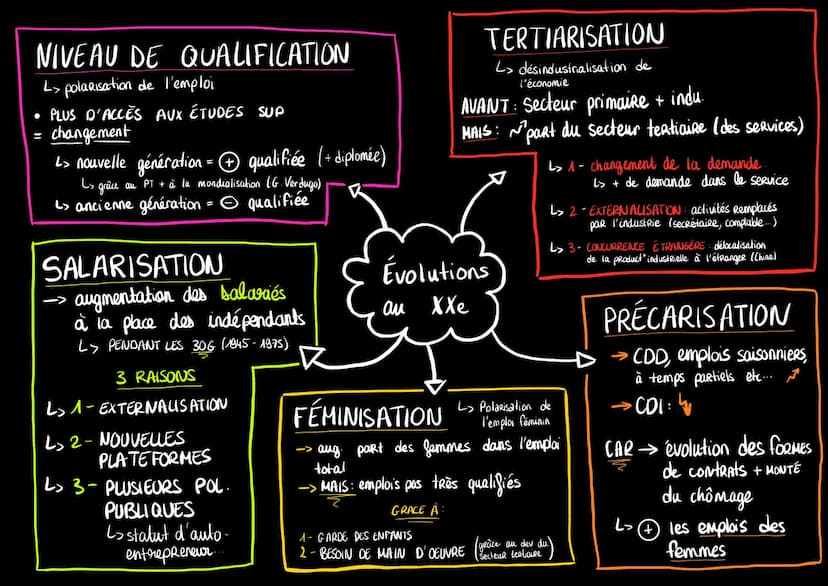 NIVEAU DE QUALIFICATION
↳ polarisation de l'emploi
• PLUS D'ACCÈS AUX ÉTUDES SUP
= changement
↳ nouvelle génération = ⊕ qualifiée (+ diplomée)
↳ grâce au PT + à la mondialisation (G. Verdugo)
↳ ancienne génération = ⊖ qualifiée
TERTIARISATION
↳ désindustrialisation de
l'économie
AVANT : Secteur primaire + indu.
MAIS : ↗ part du secteur tertiaire (des services)
↳ 1 - changement de la demande :
↳ + de demande dans le service
↳ 2 - EXTERNALISATION : activités remplacés
par l'industrie (secrétaire, comptable...)
↳ 3 - CONCURRENCE ÉTRANGÈRE : délocalisation
de la product° industrielle à l'étranger (Chine)
Évolutions
au XXe
SALARISATION
→ augmentation des salariés
à la place des indépendants
↳ PENDANT LES 30G (1945-1975)
3 RAISONS
↳ 1 - EXTERNALISATION
↳ 2 - NOUVELLES
PLATEFORMES
↳ 3 - PLUSIEURS POL.
PUBLIQUES
↳ statut d'auto-
entrepreneur...
FÉMINISATION
↳ Polarisation de
l'emploi féminin
→ aug. part des femmes dans l'emploi
total
→ MAIS : emplois pas très qualifiés
GRACE À :
1 - GARDE DES ENFANTS
2 - BESOIN DE MAIN D'OEUVRE (grâce au dev du
secteur tertiaire)
PRÉCARISATION
→ CDD, emplois saisonniers,
à temps partiels etc... ↗
→ CDI : ↘
CAR → évolution des FORMES
de CONTRATS + MONTÉ
du chômage
↳ ⊕ les emplois des
femmes